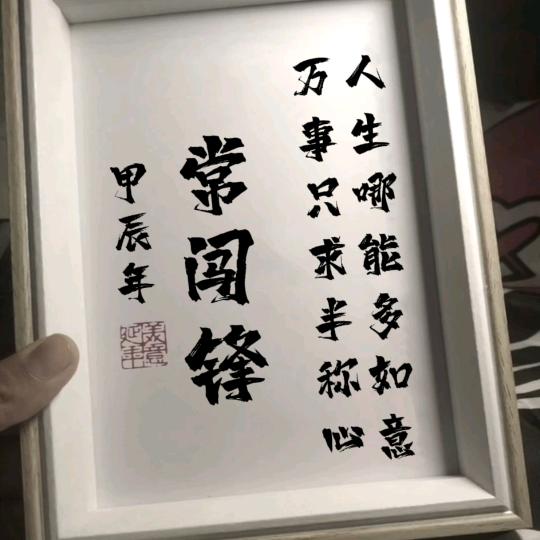 人生哪能多如意
万事只求半称心
常闯锋
甲辰年
美意延年